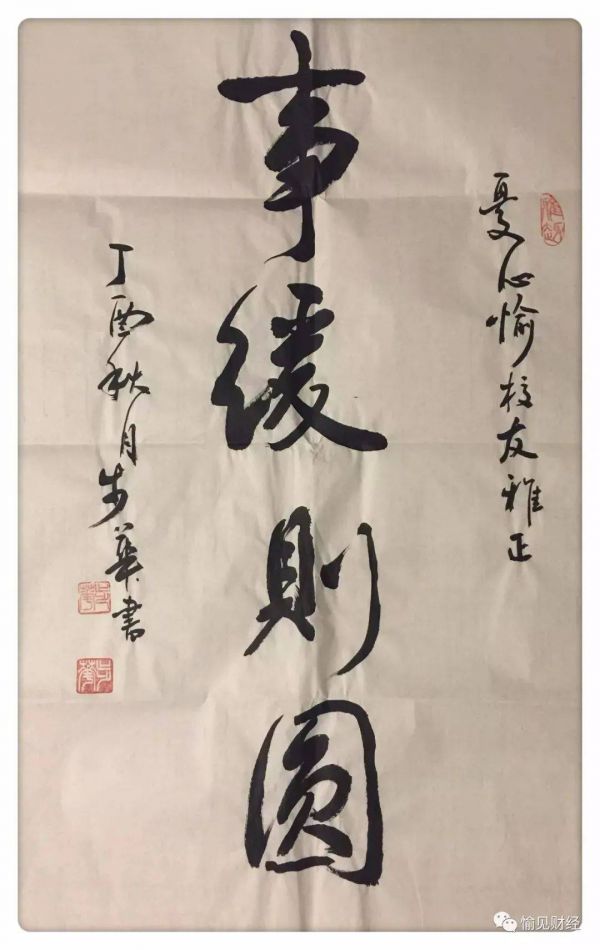 夏心愉校友雅正
事緩則圓
丁酉秋月步華書
愉见财经